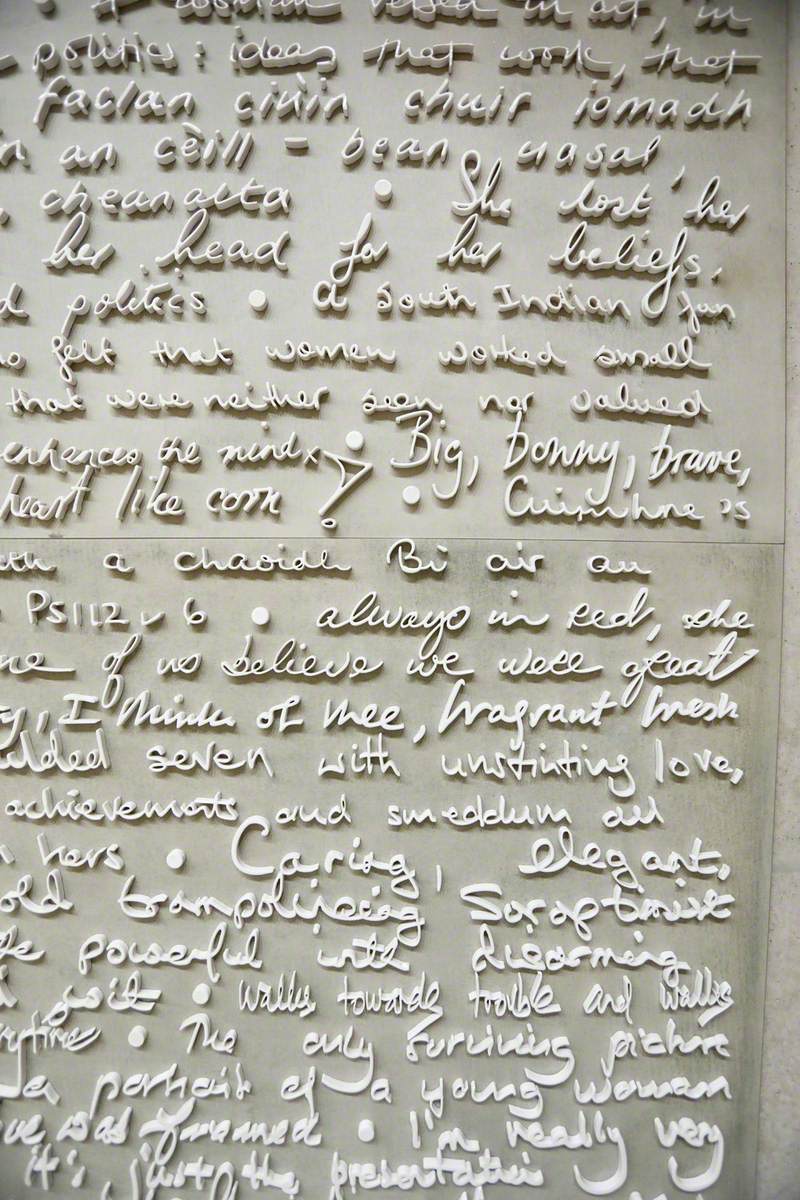 woman versed in art, in
politics: ideas that work, that
faclan ciùin chuir iomadh
an an cèill - bean uasal,
cheanalta • She lost her
her head for her beliefs.
politics • a South Indian fan
felt that women worked small
that were neither seen nor valued
enhances the mind • Big, bonny, brave,
heart like corn • Cuimhne is
a chaoidh Bi air an
PS112 v 6 • always in red, she
of us believe we were great
, I think of thee, fragrant fresh
seven with unstinting love,
achievements and smeddum are
hers • Caring, elegant,
old trampolining Soroptimist
powerful with disarming
• walks towards trouble and walks
• The only surviving picture
a portrait of a young woman
was framed • I'm really very
it's just the presentation